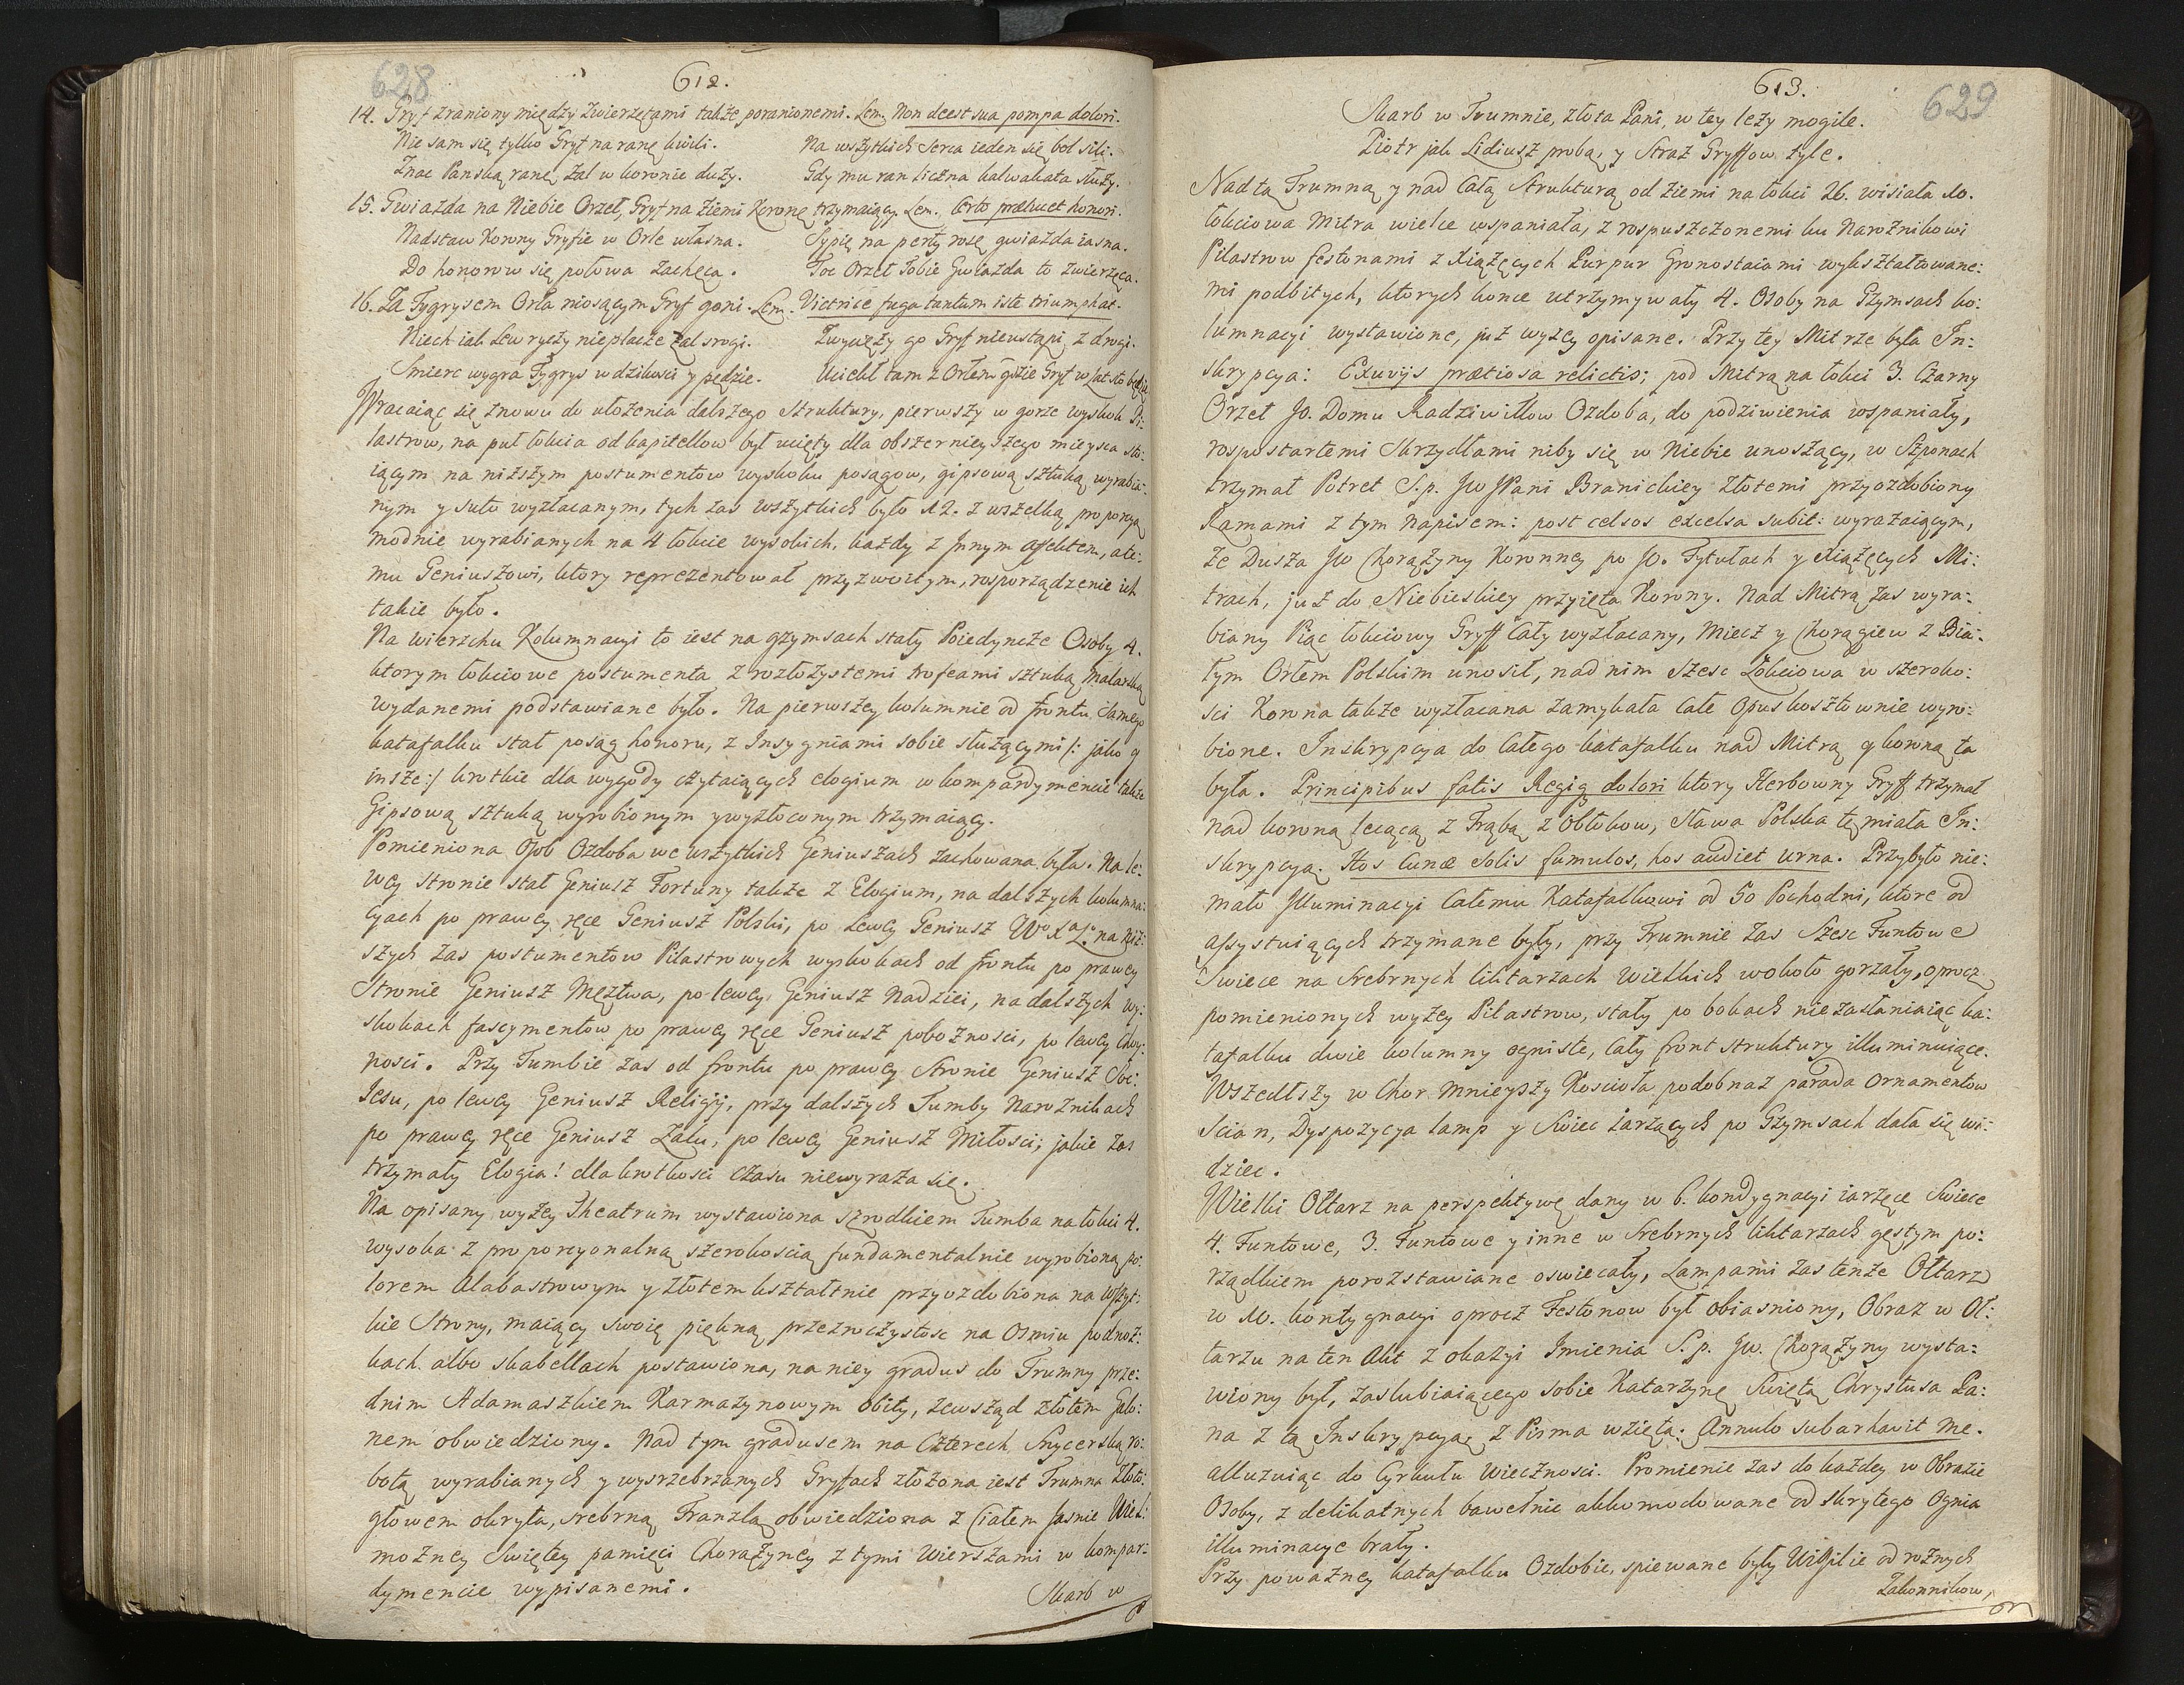 628
612.
14. Gryf zraniony między zwierzętami także poranionemi. Lem. Non deest sua pompa dolori.
Nie sam się tylko Gryf na ranę kwili. Na wszytkich serca ieden się bol sili.
Znac Panską ranę, żal w koronie duży. Gdy mu ran liczna kalwakata służy.
15. Gwiazda na Niebie Orzeł, Gryf na Ziemi Koronę trzymaiący. Lem. Orto prælucet honori.
Nadstaw Korony Gryfie w Orle własna. Sypię na perły rosę gwiazda iasna.
Do honorow się połowa zachęca. Toc Orzeł Tobie Gwiazda to zwierzęca.
16. Za Tygrysem Orła niosącym Gryf goni. Lem. Victrice fuga tantum iste triumphat.
Niech iak Lew ryczy niepłacze żal srogi. Zwycięży go Gryf nieustąpi z drogi.
Smierc wygra Tygrys w dzikosci y pędzie. Uciekł tam z Orłem gdzie Gryf w lat sto będzie
Wracaiąc się znowu do ułożenia dalszego Struktury, pierwszy w gorze wyskok Pi-
lastrow, na puł łokcia od kapitellow był ucięty dla obszernieyszego mieysca sto-
iącym na niższym postumentow wyskoku posągow, gipsową sztuką wyrabia-
nym y suto wyzłacanym, tych zas wszytkich było 12. z wszelką proporcyą
modnie wyrabianych na 4 łokcie wysokich, każdy z Innym affektem, ale:
mu Geniuszowi, ktory reprezentował przyzwoitym, rosporządzenie ich
takie było.
Na wierzchu Kolumnacyi to iest na gzymsach stały Poiedyncze Osoby 4.
ktorym łokciowe postumenta z rozłożystemi trofeami sztuką Malarską
wydanemi podstawiane było. Na pierwszey kolumnie od frontu samego
katafalku stał posąg honoru, z Insygniami sobie służącymi /: jako y
insze :/ krotkie dla wygody czytaiących elogium w kompardymencie także
Gipsową sztuką wyrobionym y wyzłoconym trzymaiący.
Pomieniona Osob Ozdoba we wszytkich Geniuszach zachowana była. Na le-
wey stronie stał Geniusz Fortuny także z Elogium, na dalszych kolumna-
cyach po prawey ręce Geniusz Polski, po Lewey Geniusz Wo X a Lo na niż:
szych zas postumentow Pilastrowych wyskokach od frontu po prawey
Stronie Geniusz Męztwa, po lewey Geniusz Nadziei, na dalszych wy:
skokach fascymentow po prawey ręce Geniusz pobożnosci, po lewey
nosci. Przy Tumbie zas od frontu po prawey Stronie Geniusz
Jesu, po lewey Geniusz Religij, przy dalszych Tumby Narożnikach
po prawey ręce Geniusz Żalu, po lewey Geniusz Miłosci; jakie zas
trzymały Elogia! dla krotkosci czasu niewyraża się.
Na opisany wyżey Theatrum wystawiona srzodkiem Tumba na łokci 4.
wysoka z proporcyonalną szerokoscią fundamentalnie wyrobioną po-
lorem Alabastrowym y złotem kształtnie przyozdobiona na wszyt:
kie Strony, maiący swoię piękną przezroczystosc na Osmiu podnoż-
kach albo skabellach postawiona, na niey gradus do Trumny prze:
dnim Adamaszkiem Karmazynowym obity, zewsząd złotem Galo:
nem obwiedziony. Nad tym gradusem na Czterech Snycerską ro:
botą wyrabianych y wysrzebrzanych Gryfach złożona iest Trumna złoto:
głowem okryta, srebrną Franzlą obwiedziona z Ciałem Jasnie Wiel:
możney Swiętey pamięci Chorążyney z tymi Wierszami w kompar-
dymencie wypisanemi.
Skarb w
629
613.
Skarb w Trumnie, złota Pani, w tey leży mogile.
Piotr jak Lidiusz probą, y Straż Gryffow tyle.
Nad tą Trumną y nad Całą Strukturą od Ziemi na łokci 26. wisiała 10.
łokciowa Mitra wielce wspaniała, z rospuszczonemi ku Narożnikowi
Pilastrow festonami z Xiążęcych Purpur Gronostaiami wykształtowane:
mi podbitych, ktorych konce utrzymywały 4. Osoby na Gzymsach ko:
lumnacyi wystawione, już wyżey opisane. Przy tey Mitrze była In-
skrypcya: Exuvijs prætiosa relictis; pod Mitrą na łokci 3. Czarny
Orzeł JO. Domu Radziwiłłow Ozdoba, do podziwienia wspaniały,
rospostartemi Skrzydłami niby się w Niebie unoszący, w Szponach
trzymał Potret S.p. JW JPani Branickiey Złotemi przyozdobiony
Ramami z tym Napisem: post celsos excelsa subit: wyrażaiącym,
że Dusza JW Chorążyny Koronney po JO. Tytułach y Xiążęcych Mi:
trach, już do Niebieskiey przyięta Korony. Nad Mitrą zas wyra-
biany Pięc łokciowy Gryff Cały wyzłacany, Miecz y Chorągiew z Bia-
łym Orłem Polskim unosił, nad nim Szesc Łokciowa w szeroko:
sci Korona także wyzłacana zamykała całe Opus kosztownie wyro-
bione. Inskrypcya do Całego katafalku nad Mitrą y koroną ta
była. Principibus fatis Regiq dolori ktory Herbowny Gryff trzymał
nad koroną lecącą z Trąbą z Obłokow, Sława Polska tę miała In:
skrypcyą. Hos Cunæ Solis fumulos, hos audiet urna. Przybyło nie-
mało Illuminacyi Całemu Katafalkowi od 50 Pochodni, ktore od
assystuiących trzymane były, przy Trumnie zas Szesc Funtowe
Swiece na Srebrnych lichtarzach wielkich wokoło gorzały, oprocz
pomienionych wyżey Pilastrow, stały po bokach niezasłaniaiąc ka:
tafalku dwie kolumny ogniste, cały front struktury illuminuiące.
Wszedłszy w Chor mnieyszy Koscioła podobnaż parada Ornamentow
Scian, Dyspozycya lamp y Swiec żarzących po Gzymsach dała się wi-
dziec.
Wielki Ołtarz na perspektywę dany w 6. kondygnacyi iarzęce Swiece
4. Funtowe, 3. Funtowe y inne w Srebrnych lichtarzach gęstym po-
rządkiem porozstawiane oswiecały, Lampami zas tenże Ołtarz
w 10. kontygnacyi oprocz Festonow był obiasniony, Obraz w Oł:
tarzu na ten Akt z okazyi Imienia S.p. JW. Chorążyny wysta-
wiony był, zaslubiaiącego sobie Katarzynę Swiętą Chrystusa Pa:
na z tą Inskrypcyą z Pisma wziętą: Annulo subarhavit me.
alluzuiąc do Cyrkułu wiecznosci. Promienie zas do każdey w Obrazie
Osoby, z delikatnych bawełnie akkomodowane od skrytego Ognia
illuminacye brały.
Przy poważney katafalku Ozdobie, spiewane były Wigilie od rożnych
Zakonnikow,